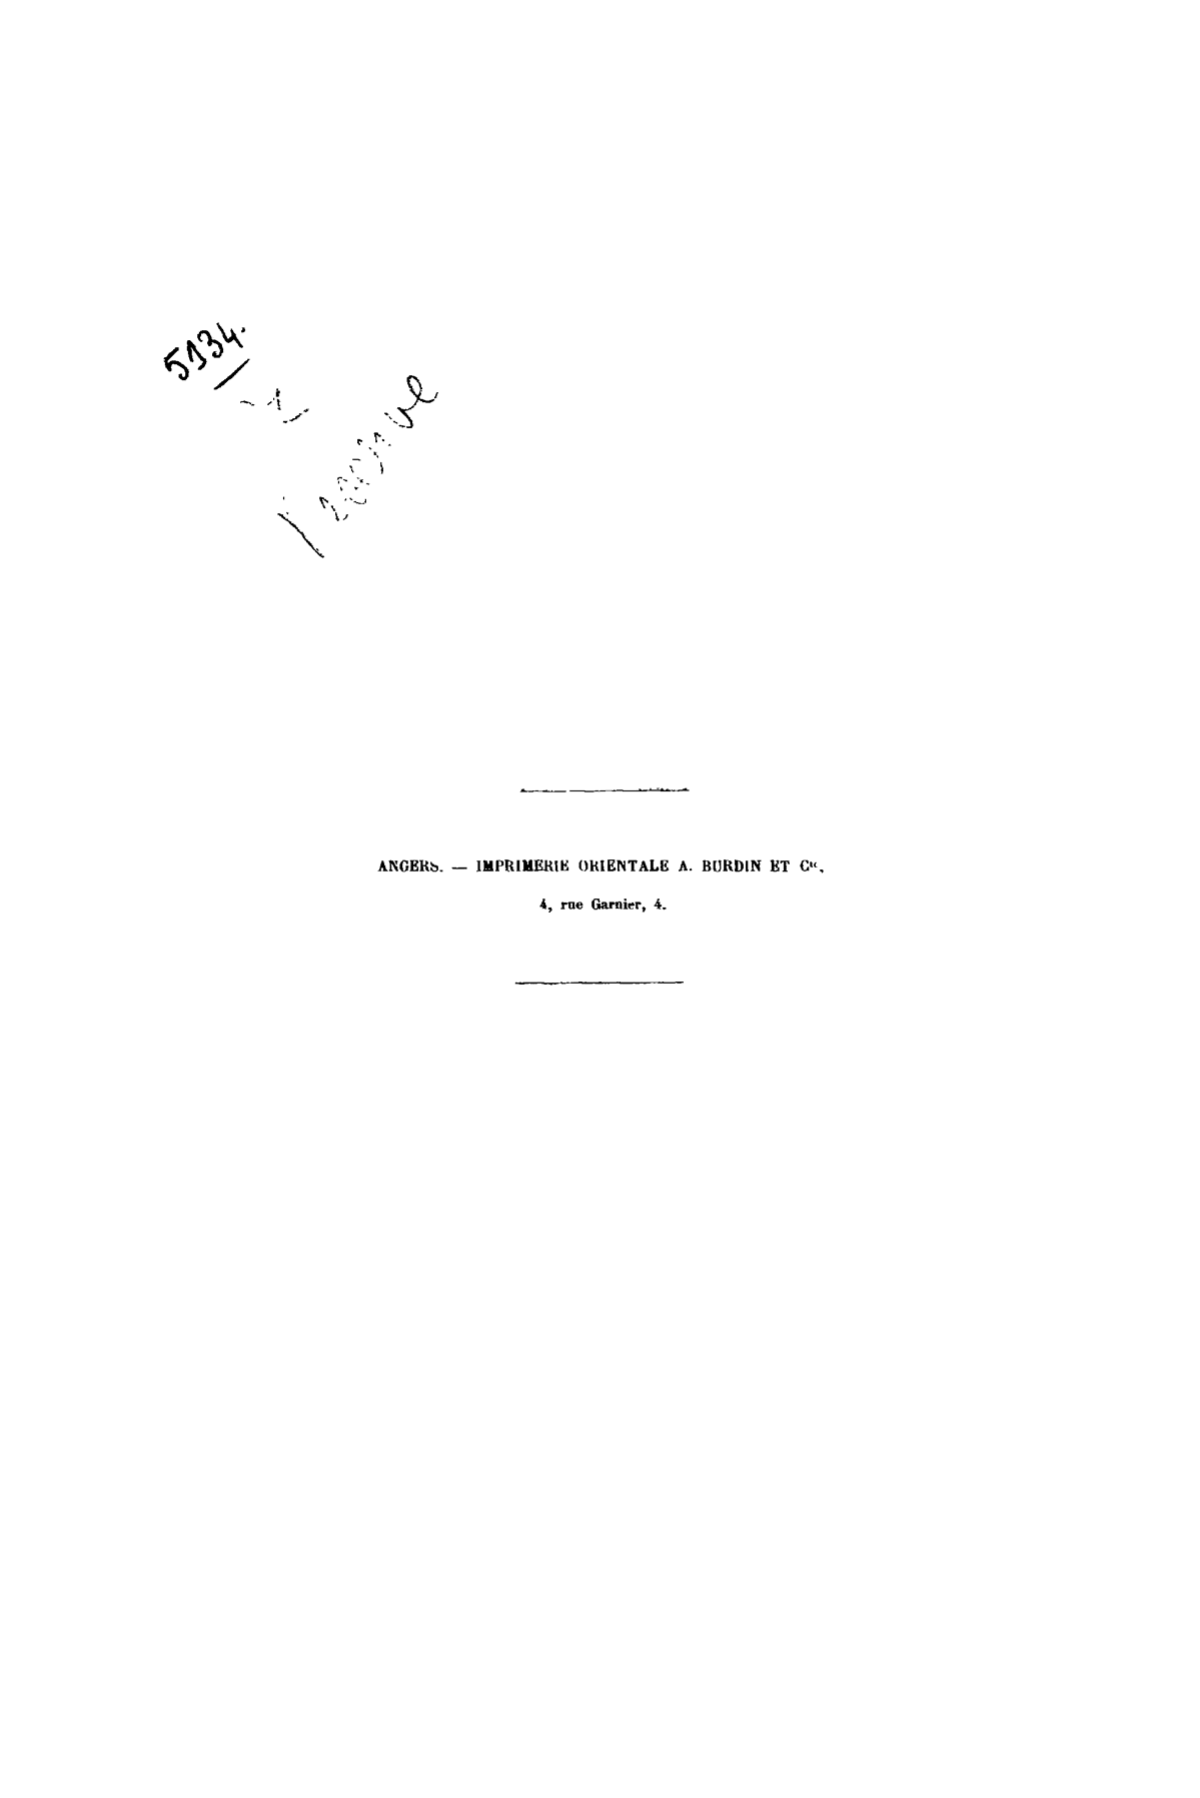 5134.
ANGERS. — IMPRIMERIE ORIENTALE A. BURDIN ET Cie,
4, rue Garnier, 4.